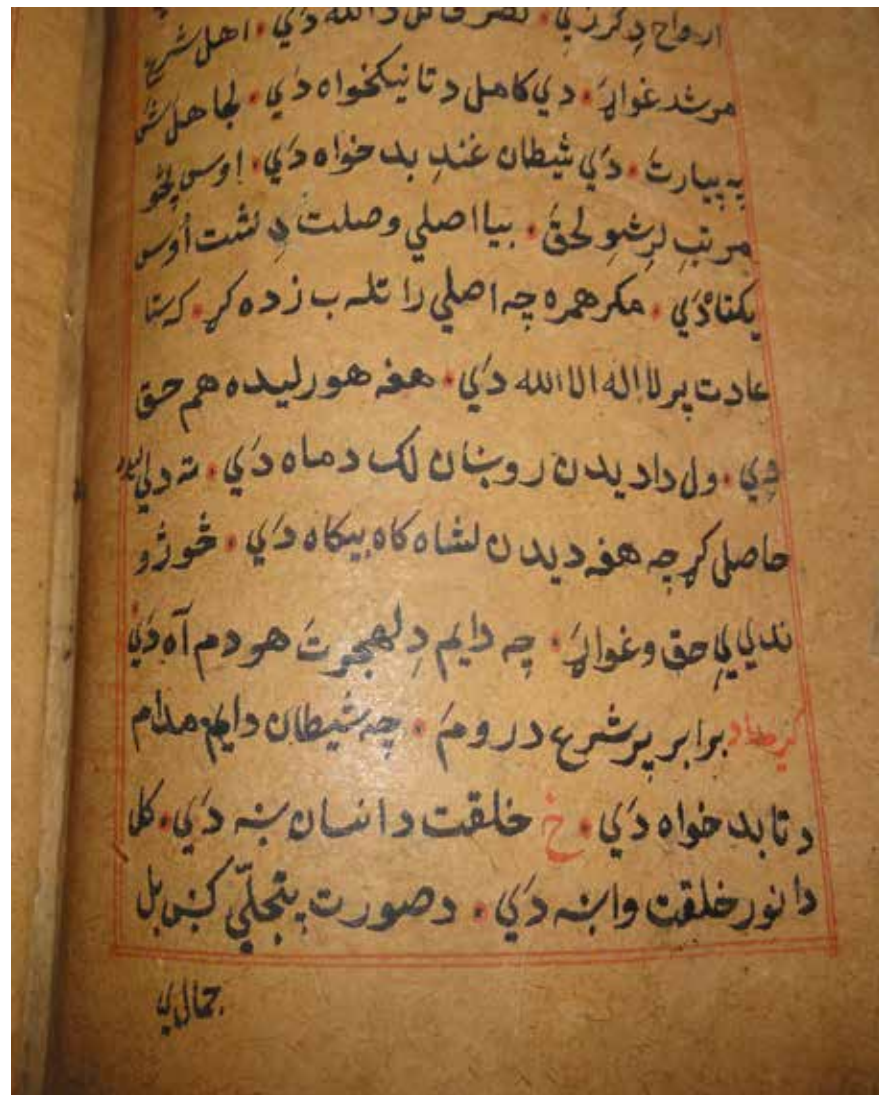 ارواح دِ کرزنِي • تصرف د الله دَي • اهل شرع
مرشد غواړه • دي کامل د تا نيکخواه دَي • لجاهل
په بيارتَ • دَي شيطان غندِ بد خواه دَي • اوس
مرتبِ لرِ شوِ لحقَ • بيا اصلي وصلت دِ نشت اُوس
يکتاه دَي • مکر همره چه اصلي را تله ب زده کړ • که ستا
عادت پر لا اله الا الله دَي • هغه هور ليده هم حق
دَي • ول دا ديدن روښان لک د ماه دَي • ته دلي
حاصل کړ چه هغه ديدن لشاه کاه بيکاه دَي • څو ژو
ندي يي حق وغواړه • چه دايم دِ لهجرتَ هر دم آه دَي
برابر پر شرع در ومَ • چه شيطان دايم مدام
د تا بد خواه دَي • خ خلقت د انسان ښه دَي • کل
دا نور خلقت وا ښه دَي • د صورت پتجلّي کښ بل
جمال ي